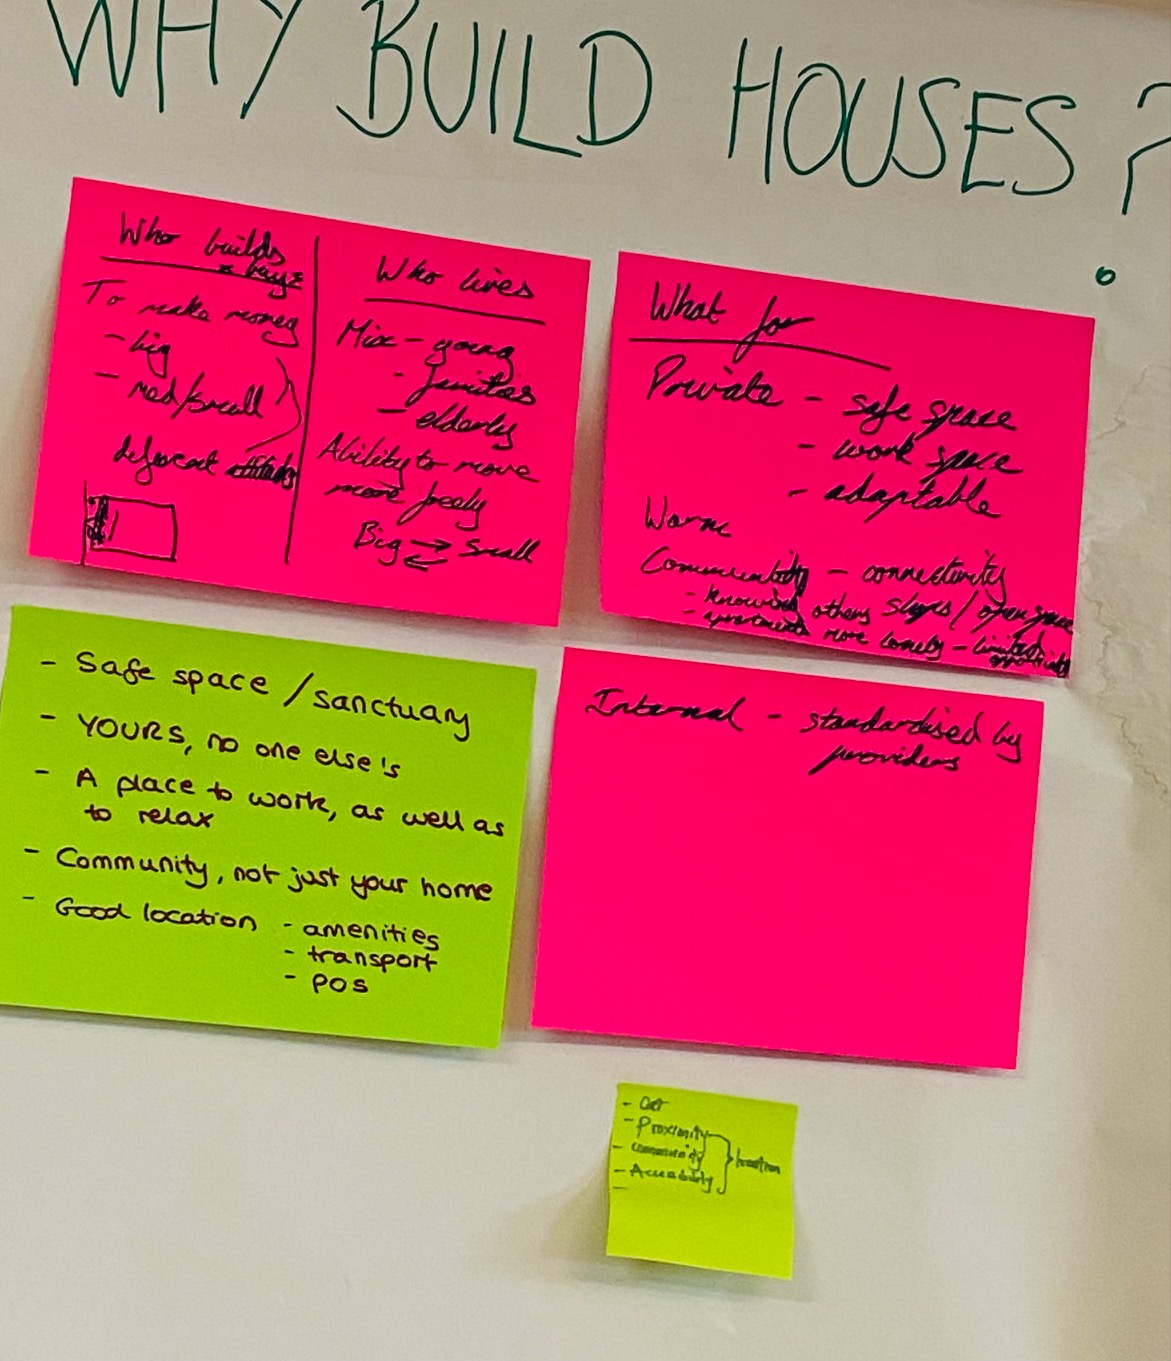 WHY BUILD HOUSES?
Who builds
& buys
To make money
- big
- med/small
different
Who lives
Mix - young
- families
- elderly
Ability to move
more freely
Big → small
What for
Private - safe space
- work space
- adaptable
Warm
Community - connectivity
- knowing others / open space
- apartments more lonely - limited
- Safe space / sanctuary
- YOURS, no one else's
- A place to work, as well as
to relax
- Community, not just your home
- Good location - amenities
- transport
- POS
Internal - standardised by
providers
- Proximity
- community
- Accessibility
location